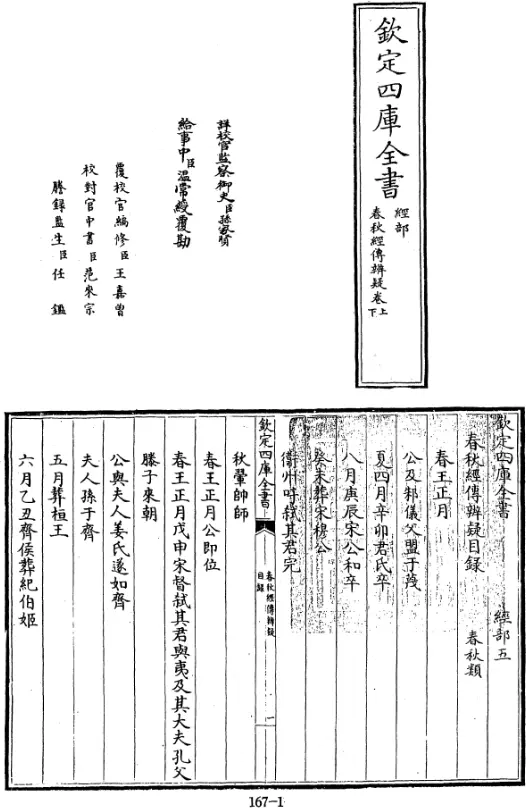 欽定四庫全書
經部
春秋經傳辨疑卷上下
詳校官監察御史臣孫家賢
給事中臣溫常綬覆勘
覆校官編修臣王嘉曾
校對官中書臣范來宗
謄錄監生臣任鑑
欽定四庫全書 經部五
春秋經傳辨疑目錄 春秋類
春王正月
公及邾儀父盟于蔑
夏四月辛卯君氏卒
八月庚辰宋公和卒
癸未葬宋穆公
衞州吁弑其君完
欽定四庫全書
春秋經傳辨疑
目錄
秋翬帥師
春王正月公即位
春王正月戊申宋督弑其君與夷及其大夫孔父
滕子來朝
公與夫人姜氏遂如齊
夫人孫于齊
五月葬桓王
六月乙丑齊侯葬紀伯姬
167-1